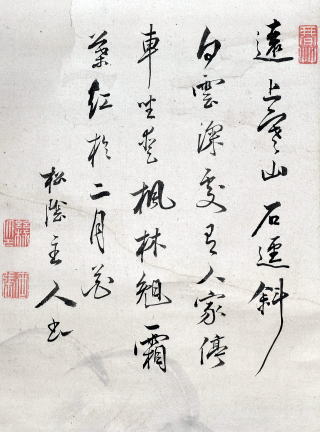 遠上寒山石逕斜
白雲深處有人家停
車坐愛楓林晚霜
葉紅於二月花
松主人書